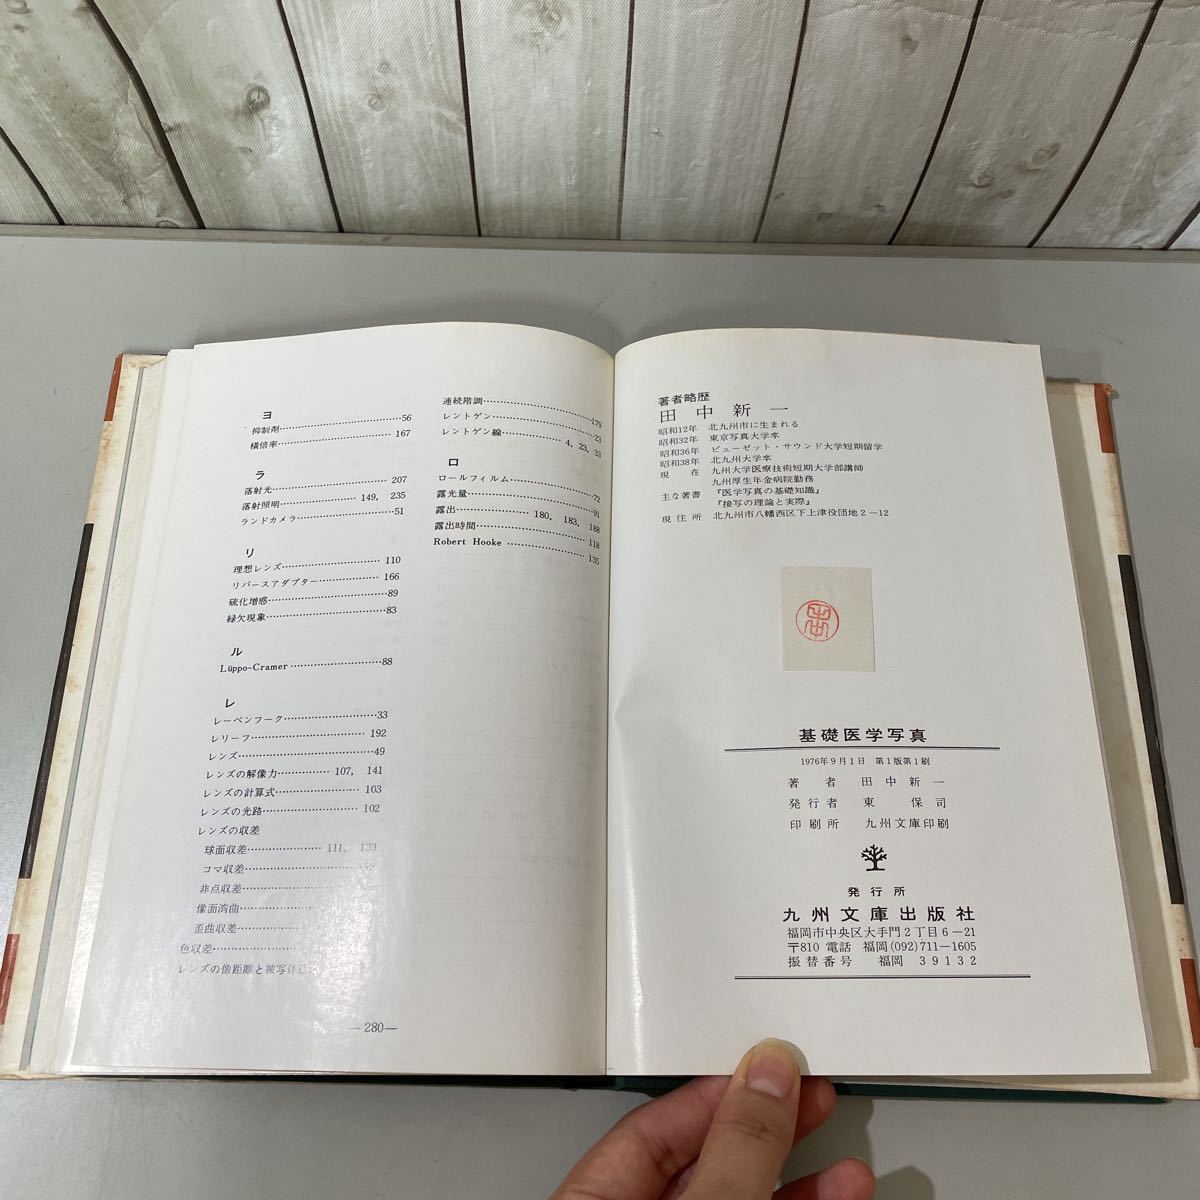 ヨ
抑制剤……56
横倍率……167
ラ
落射光……207
落射照明……149, 235
ランドカメラ……51
リ
理想レンズ……110
リバースアダプター……166
硫化増感……89
緑欠現象……83
ル
Lüppo-Cramer……88
レ
レーベンフーク……33
レリーフ……192
レンズ……49
レンズの解像力……107, 141
レンズの計算式……103
レンズの光路……102
レンズの収差
球面収差……111, 139
コマ収差……
非点収差……
像面湾曲……
歪曲収差……
色収差……
レンズの像距離と被写体
連続階調……179
レントゲン……23
レントゲン線……4, 23, 33
ロ
ロールフィルム……72
露光量……91
露出……180, 183, 188
露出時間……118
Robert Hooke……135
—280—
著者略歴
田中新一
昭和12年 北九州市に生まれる
昭和32年 東京写真大学卒
昭和36年 ピューゼット・サウンド大学短期留学
昭和38年 北九州大学卒
現在 九州大学医療技術短期大学部講師
九州厚生年金病院勤務
主な著書 『医学写真の基礎知識』
『接写の理論と実際』
現住所 北九州市八幡西区下上津役団地2－12
田中
基礎医学写真
1976年9月1日 第1版第1刷
著者 田中新一
発行者 東保司
印刷所 九州文庫印刷
発行所
九州文庫出版社
福岡市中央区大手門2丁目6－21
〒810 電話 福岡(092)711－1605
振替番号 福岡 39132